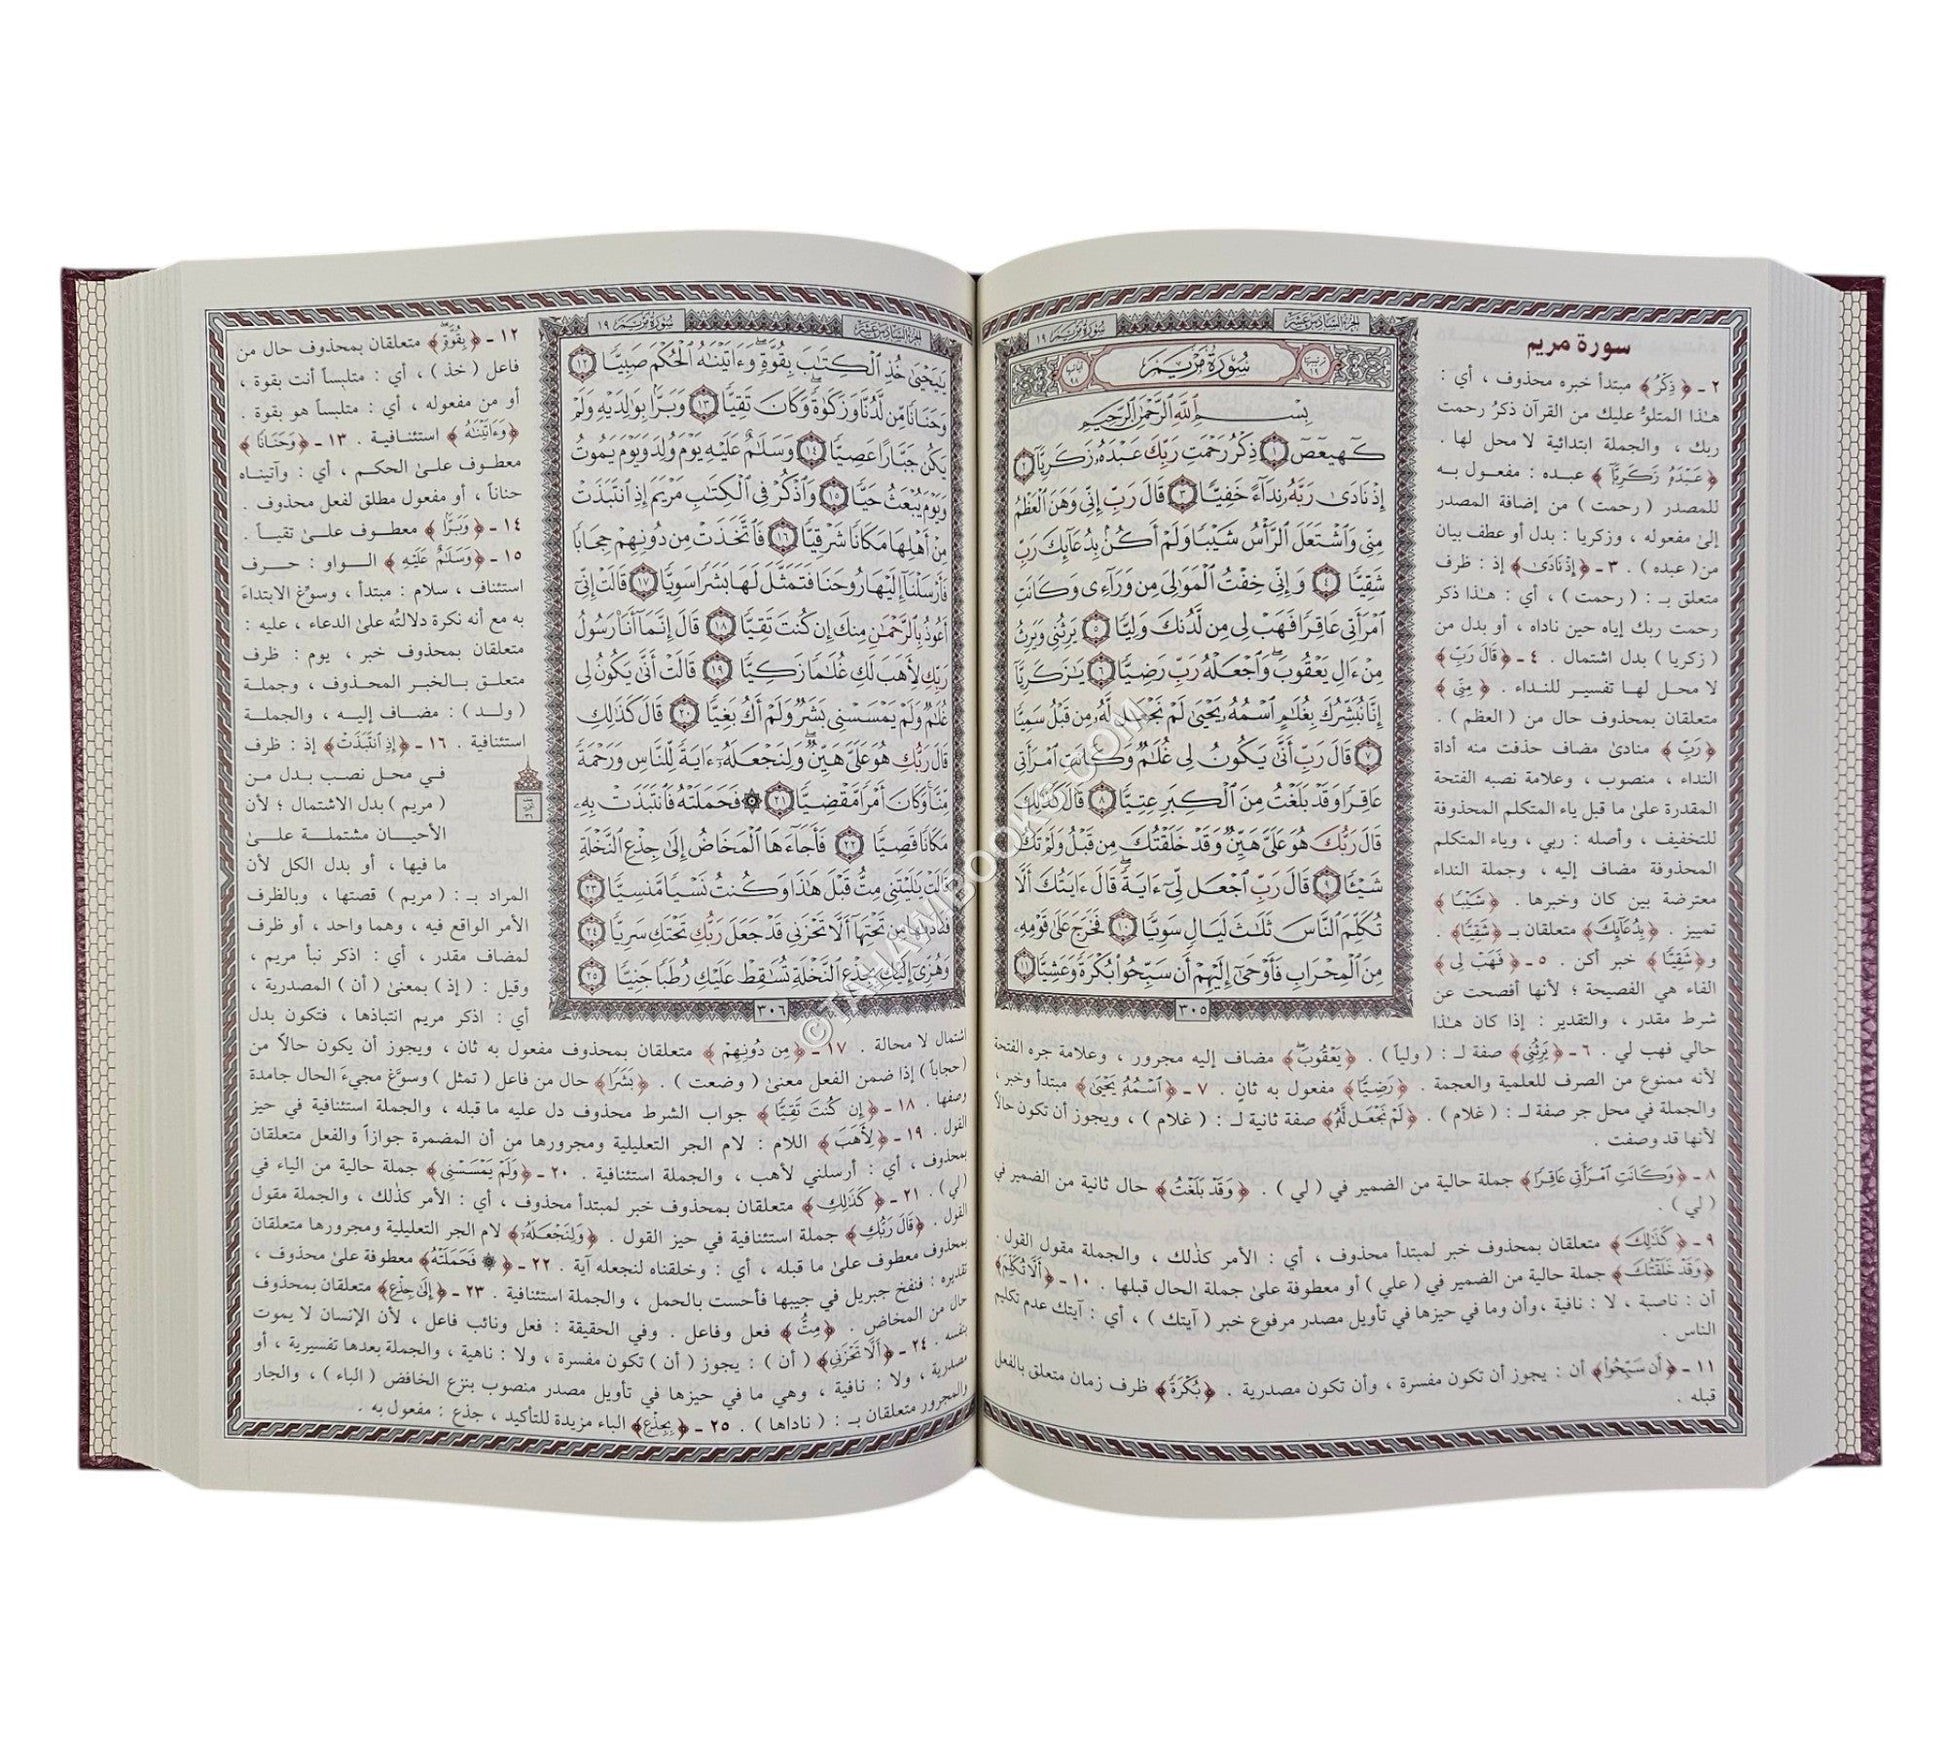 سورة مريم
٢ ـ ﴿ذِكْرُ﴾ مبتدأ خبره محذوف ، أي :
هـٰذا المتلوُّ عليك من القرآن ذكرُ رحمت
ربك ، والجملة ابتدائية لا محل لها .
﴿عَبْدَهُۥ زَكَرِيَّآ﴾ عبده : مفعول به
للمصدر ( رحمت ) من إضافة المصدر
إلىٰ مفعوله ، وزكريا : بدل أو عطف بيان
من ( عبده ) . ٣ ـ ﴿إِذْ نَادَىٰ﴾ إذ : ظرف
متعلق بـ : ( رحمت ) ، أي : هـٰذا ذكر
رحمت ربك إياه حين ناداه ، أو بدل من
( زكريا ) بدل اشتمال . ٤ ـ ﴿قَالَ رَبِّ﴾
لا محل لها تفسير للنداء . ﴿مِنِّي﴾
متعلقان بمحذوف حال من ( العظم ) .
﴿رَبِّ﴾ منادىٰ مضاف حذفت منه أداة
النداء ، منصوب ، وعلامة نصبه الفتحة
المقدرة علىٰ ما قبل ياء المتكلم المحذوفة
للتخفيف ، وأصله : ربي ، وياء المتكلم
المحذوفة مضاف إليه ، وجملة النداء
معترضة بين كان وخبرها . ﴿شَيْبًا﴾
تمييز . ﴿بِدُعَآئِكَ﴾ متعلقان بـ ﴿شَقِيًّا﴾ .
و﴿شَقِيًّا﴾ خبر أكن . ٥ ـ ﴿فَهَبْ لِي﴾
الفاء هي الفصيحة ؛ لأنها أفصحت عن
شرط مقدر ، والتقدير : إذا كان هـٰذا
الجزء السادس عشر سورة مريم ١٩
ترتيبها ١٩ سورة مريم آياتها ٩٨
بِسْمِ ٱللَّهِ ٱلرَّحْمَٰنِ ٱلرَّحِيمِ
كٓهيعٓصٓ ١ ذِكْرُ رَحْمَتِ رَبِّكَ عَبْدَهُۥ زَكَرِيَّآ ٢
إِذْ نَادَىٰ رَبَّهُۥ نِدَآءً خَفِيًّا ٣ قَالَ رَبِّ إِنِّي وَهَنَ ٱلْعَظْمُ
مِنِّي وَٱشْتَعَلَ ٱلرَّأْسُ شَيْبًا وَلَمْ أَكُنۢ بِدُعَآئِكَ رَبِّ
شَقِيًّا ٤ وَإِنِّي خِفْتُ ٱلْمَوَٰلِيَ مِن وَرَآءِي وَكَانَتِ
ٱمْرَأَتِي عَاقِرًا فَهَبْ لِي مِن لَّدُنكَ وَلِيًّا ٥ يَرِثُنِي وَيَرِثُ
مِنْ ءَالِ يَعْقُوبَ ۖ وَٱجْعَلْهُ رَبِّ رَضِيًّا ٦ يَٰزَكَرِيَّآ
إِنَّا نُبَشِّرُكَ بِغُلَٰمٍ ٱسْمُهُۥ يَحْيَىٰ لَمْ نَجْعَل لَّهُۥ مِن قَبْلُ سَمِيًّا
٧ قَالَ رَبِّ أَنَّىٰ يَكُونُ لِي غُلَٰمٌ وَكَانَتِ ٱمْرَأَتِي
عَاقِرًا وَقَدْ بَلَغْتُ مِنَ ٱلْكِبَرِ عِتِيًّا ٨ قَالَ كَذَٰلِكَ
قَالَ رَبُّكَ هُوَ عَلَيَّ هَيِّنٌ وَقَدْ خَلَقْتُكَ مِن قَبْلُ وَلَمْ تَكُ
شَيْـًٔا ٩ قَالَ رَبِّ ٱجْعَل لِّيٓ ءَايَةً ۚ قَالَ ءَايَتُكَ أَلَّا
تُكَلِّمَ ٱلنَّاسَ ثَلَٰثَ لَيَالٍ سَوِيًّا ١٠ فَخَرَجَ عَلَىٰ قَوْمِهِۦ
مِنَ ٱلْمِحْرَابِ فَأَوْحَىٰٓ إِلَيْهِمْ أَن سَبِّحُوا۟ بُكْرَةً وَعَشِيًّا ١١
٣٠٥
حالي فهب لي . ٦ ـ ﴿يَرِثُنِي﴾ صفة لـ : ( ولياً ) . ﴿يَعْقُوبَ﴾ مضاف إليه مجرور ، وعلامة جره الفتحة
لأنه ممنوع من الصرف للعلمية والعجمة . ﴿رَضِيًّا﴾ مفعول به ثانٍ . ٧ ـ ﴿ٱسْمُهُۥ يَحْيَىٰ﴾ مبتدأ وخبر ،
والجملة في محل جر صفة لـ : ( غلام ) . ﴿لَمْ نَجْعَل لَّهُۥ﴾ صفة ثانية لـ : ( غلام ) ، ويجوز أن تكون حالاً
لأنها قد وصفت .
٨ ـ ﴿وَكَانَتِ ٱمْرَأَتِي عَاقِرًا﴾ جملة حالية من الضمير في ( لي ) . ﴿وَقَدْ بَلَغْتُ﴾ حال ثانية من الضمير في
( لي ) .
٩ ـ ﴿كَذَٰلِكَ﴾ متعلقان بمحذوف خبر لمبتدأ محذوف ، أي : الأمر كذٰلك ، والجملة مقول القول .
﴿وَقَدْ خَلَقْتُكَ﴾ جملة حالية من الضمير في ( علي ) أو معطوفة علىٰ جملة الحال قبلها . ١٠ ـ ﴿أَلَّا تُكَلِّمَ﴾
أن : ناصبة ، لا : نافية ، وأن وما في حيزها في تأويل مصدر مرفوع خبر ( آيتك ) ، أي : آيتك عدم تكليم
الناس .
١١ ـ ﴿أَن سَبِّحُوا۟﴾ أن : يجوز أن تكون مفسرة ، وأن تكون مصدرية . ﴿بُكْرَةً﴾ ظرف زمان متعلق بالفعل
قبله .
الجزء السادس عشر سورة مريم ١٩
يَٰيَحْيَىٰ خُذِ ٱلْكِتَٰبَ بِقُوَّةٍ ۖ وَءَاتَيْنَٰهُ ٱلْحُكْمَ صَبِيًّا ١٢
وَحَنَانًا مِّن لَّدُنَّا وَزَكَوٰةً ۖ وَكَانَ تَقِيًّا ١٣ وَبَرًّۢا بِوَٰلِدَيْهِ وَلَمْ
يَكُن جَبَّارًا عَصِيًّا ١٤ وَسَلَٰمٌ عَلَيْهِ يَوْمَ وُلِدَ وَيَوْمَ يَمُوتُ
وَيَوْمَ يُبْعَثُ حَيًّا ١٥ وَٱذْكُرْ فِي ٱلْكِتَٰبِ مَرْيَمَ إِذِ ٱنتَبَذَتْ
مِنْ أَهْلِهَا مَكَانًا شَرْقِيًّا ١٦ فَٱتَّخَذَتْ مِن دُونِهِمْ حِجَابًا
فَأَرْسَلْنَآ إِلَيْهَا رُوحَنَا فَتَمَثَّلَ لَهَا بَشَرًا سَوِيًّا ١٧ قَالَتْ إِنِّيٓ
أَعُوذُ بِٱلرَّحْمَٰنِ مِنكَ إِن كُنتَ تَقِيًّا ١٨ قَالَ إِنَّمَآ أَنَا۠ رَسُولُ
رَبِّكِ لِأَهَبَ لَكِ غُلَٰمًا زَكِيًّا ١٩ قَالَتْ أَنَّىٰ يَكُونُ لِي
غُلَٰمٌ وَلَمْ يَمْسَسْنِي بَشَرٌ وَلَمْ أَكُ بَغِيًّا ٢٠ قَالَ كَذَٰلِكِ
قَالَ رَبُّكِ هُوَ عَلَيَّ هَيِّنٌ ۖ وَلِنَجْعَلَهُۥٓ ءَايَةً لِّلنَّاسِ وَرَحْمَةً
مِّنَّا ۚ وَكَانَ أَمْرًا مَّقْضِيًّا ٢١ ۞ فَحَمَلَتْهُ فَٱنتَبَذَتْ بِهِۦ
مَكَانًا قَصِيًّا ٢٢ فَأَجَآءَهَا ٱلْمَخَاضُ إِلَىٰ جِذْعِ ٱلنَّخْلَةِ
قَالَتْ يَٰلَيْتَنِي مِتُّ قَبْلَ هَٰذَا وَكُنتُ نَسْيًا مَّنسِيًّا ٢٣
فَنَادَىٰهَا مِن تَحْتِهَآ أَلَّا تَحْزَنِي قَدْ جَعَلَ رَبُّكِ تَحْتَكِ سَرِيًّا ٢٤
وَهُزِّيٓ إِلَيْكِ بِجِذْعِ ٱلنَّخْلَةِ تُسَٰقِطْ عَلَيْكِ رُطَبًا جَنِيًّا ٢٥
٣٠٦
١٢ ـ ﴿بِقُوَّةٍ﴾ متعلقان بمحذوف حال من
فاعل ( خذ ) ، أي : متلبساً أنت بقوة ،
أو من مفعوله ، أي : متلبساً هو بقوة .
﴿وَءَاتَيْنَٰهُ﴾ استئنافية . ١٣ ـ ﴿وَحَنَانًا﴾
معطوف علىٰ الحكم ، أي : وآتيناه
حناناً ، أو مفعول مطلق لفعل محذوف .
١٤ ـ ﴿وَبَرًّۢا﴾ معطوف علىٰ تقياً .
١٥ ـ ﴿وَسَلَٰمٌ عَلَيْهِ﴾ الواو : حرف
استئناف ، سلام : مبتدأ ، وسوَّغ الابتداءَ
به مع أنه نكرة دلالتُه علىٰ الدعاء ، عليه :
متعلقان بمحذوف خبر ، يوم : ظرف
متعلق بالخبر المحذوف ، وجملة
( ولد ) : مضاف إليه ، والجملة
استئنافية . ١٦ ـ ﴿إِذِ ٱنتَبَذَتْ﴾ إذ : ظرف
في محل نصب بدل من
( مريم ) بدل الاشتمال ؛ لأن
الأحيان مشتملة علىٰ
ما فيها ، أو بدل الكل لأن
المراد بـ : ( مريم ) قصتها ، وبالظرف
الأمر الواقع فيه ، وهما واحد ، أو ظرف
لمضاف مقدر ، أي : اذكر نبأ مريم ،
وقيل : ( إذ ) بمعنىٰ ( أن ) المصدرية ،
أي : اذكر مريم انتباذها ، فتكون بدل
اشتمال لا محالة . ١٧ ـ ﴿مِن دُونِهِمْ﴾ متعلقان بمحذوف مفعول به ثان ، ويجوز أن يكون حالاً من
( حجاباً ) إذا ضمن الفعل معنىٰ ( وضعت ) . ﴿بَشَرًا﴾ حال من فاعل ( تمثل ) وسوَّغ مجيءَ الحال جامدة
وصفها . ١٨ ـ ﴿إِن كُنتَ تَقِيًّا﴾ جواب الشرط محذوف دل عليه ما قبله ، والجملة استئنافية في حيز
القول . ١٩ ـ ﴿لِأَهَبَ﴾ اللام : لام الجر التعليلية ومجرورها من أن المضمرة جوازاً والفعل متعلقان
بمحذوف ، أي : أرسلني لأهب ، والجملة استئنافية . ٢٠ ـ ﴿وَلَمْ يَمْسَسْنِي﴾ جملة حالية من الياء في
( لي ) . ٢١ ـ ﴿كَذَٰلِكِ﴾ متعلقان بمحذوف خبر لمبتدأ محذوف ، أي : الأمر كذٰلك ، والجملة مقول
القول . ﴿قَالَ رَبُّكِ﴾ جملة استئنافية في حيز القول . ﴿وَلِنَجْعَلَهُۥٓ﴾ لام الجر التعليلية ومجرورها متعلقان
بمحذوف معطوف علىٰ ما قبله ، أي : وخلقناه لنجعله آية . ٢٢ ـ ﴿۞ فَحَمَلَتْهُ﴾ معطوفة علىٰ محذوف ،
تقديره : فنفخ جبريل في جيبها فأحست بالحمل ، والجملة استئنافية . ٢٣ ـ ﴿إِلَىٰ جِذْعِ﴾ متعلقان بمحذوف
حال من المخاض . ﴿مِتُّ﴾ فعل وفاعل . وفي الحقيقة : فعل ونائب فاعل ، لأن الإنسان لا يموت
بنفسه . ٢٤ ـ ﴿أَلَّا تَحْزَنِي﴾ ( أن ) : يجوز ( أن ) تكون مفسرة ، ولا : ناهية ، والجملة بعدها تفسيرية ، أو
مصدرية ، ولا : نافية ، وهي ما في حيزها في تأويل مصدر منصوب بنزع الخافض ( الباء ) ، والجار
والمجرور متعلقان بـ : ( ناداها ) . ٢٥ ـ ﴿بِجِذْعِ﴾ الباء مزيدة للتأكيد ، جذع : مفعول به .
© TAHAMIBOOKS.COM